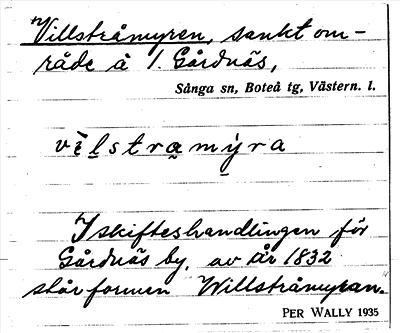 Villstråmyren, sankt om-
råde å 1. Gårdnäs,
Sånga sn, Boteå tg, Västern. l.
vèl̠stra̠mẏ̠ra
I skifteshandlingen för
Gårdnäs by, av år 1832
står formen "Willstråmyran."
PER WALLY 1935